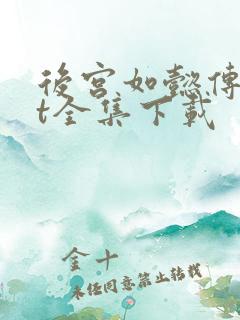 後宮如懿傳
t全集下載
金十
未经同意禁止转载